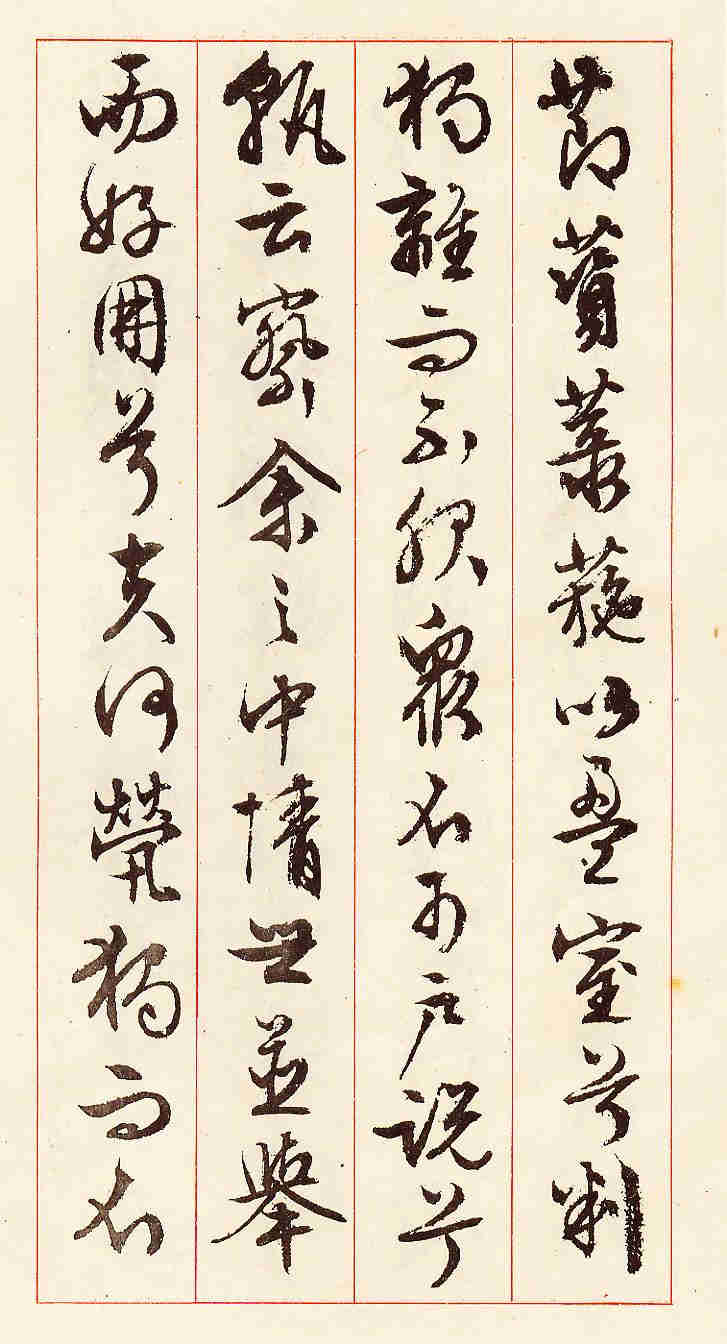 節薋菉葹以盈室兮判
獨離而不服衆不可戶説兮
孰云察余之中情世並舉
而好朋兮夫何煢獨而不